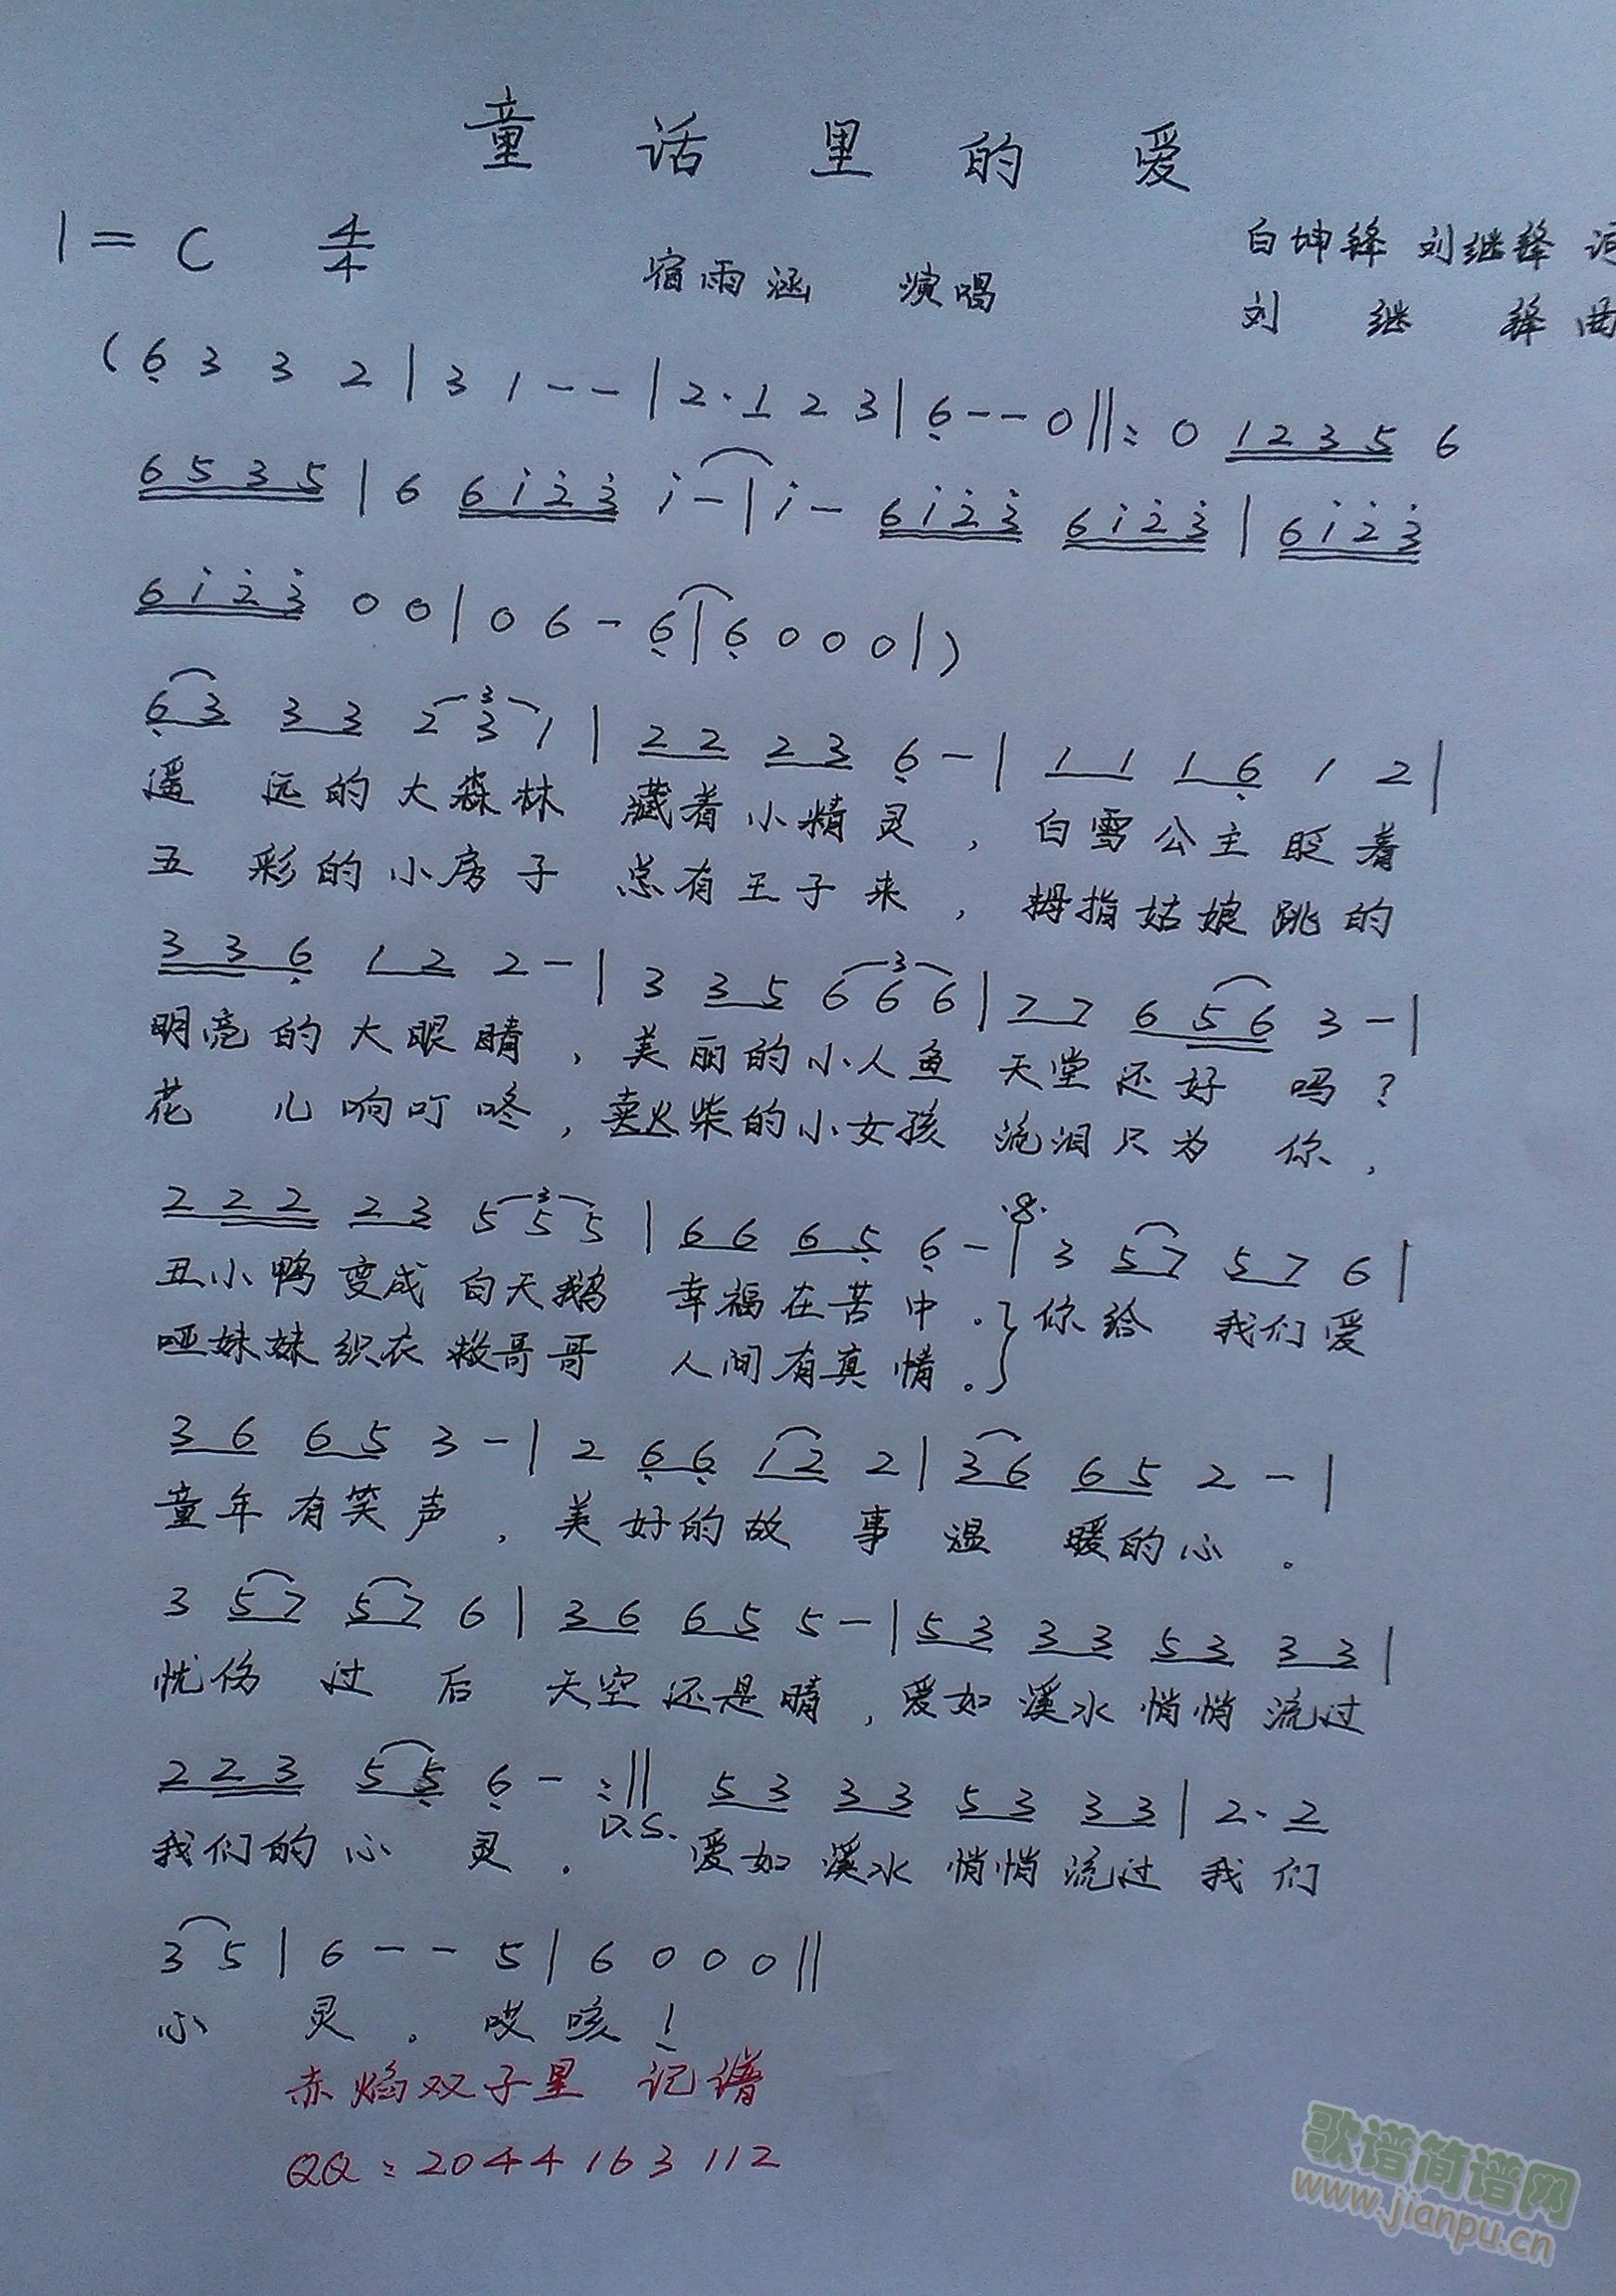 童 话 里 的 爱
1=C 4/4
宿雨涵 演唱
白坤锋 刘继锋 词
刘 继 锋 曲
(6̣ 3 3 2 | 3 1 - - | 2· 1 2 3 | 6̣ - - 0 ‖: 0 1 2 3 5 6
6 5 3 5 | 6 6 i 2̇ 3̇ i - | i - 6 i 2̇ 3̇ 6 i 2̇ 3̇ | 6 i 2̇ 3̇
6 i 2̇ 3̇ 0 0 | 0 6 - 6̣ | 6̣ 0 0 0 | )
6̣ 3 3 3 2 3 1 | 2 2 2 3 6̣ - | 1 1 1 6̣ 1 2 |
遥 远的大森林 藏着小精灵， 白雪公主眨着
五 彩的小房子 总有王子来， 拇指姑娘跳的
3 3 6̣ 1 2 2 - | 3 3 5 6 6 6 | 7 7 6 5 6 3 - |
明亮的大眼睛， 美丽的小人鱼 天堂还好 吗？
花 儿响叮咚， 卖火柴的小女孩 流泪只为 你，
2 2 2 2 3 5 5 5 | 6 6 6 5̣ 6̣ - | 3 5 7 5 7 6 |
丑小鸭变成白天鹅 幸福在苦中。 你给 我们爱
哑妹妹织衣救哥哥 人间有真情。
3 6 6 5 3 - | 2 6̣ 6̣ 1 2 2 | 3 6 6 5 2 - |
童年有笑声， 美好的故 事 温 暖的心。
3 5 7 5 7 6 | 3 6 6 5 5 - | 5 3 3 3 5 3 3 3 |
忧伤 过 后 天空还是晴， 爱如溪水悄悄流过
2 2 3 5 5̣ 6̣ - :‖ 5 3 3 3 5 3 3 3 | 2· 2
D.S.
我们的心 灵。 爱如溪水悄悄流过我们
3 5 | 6 - - 5 | 6 0 0 0 ‖
心 灵。 哎咳！
赤焰双子星 记谱
QQ：2044163112
歌谱简谱网
www.jianpu.cn